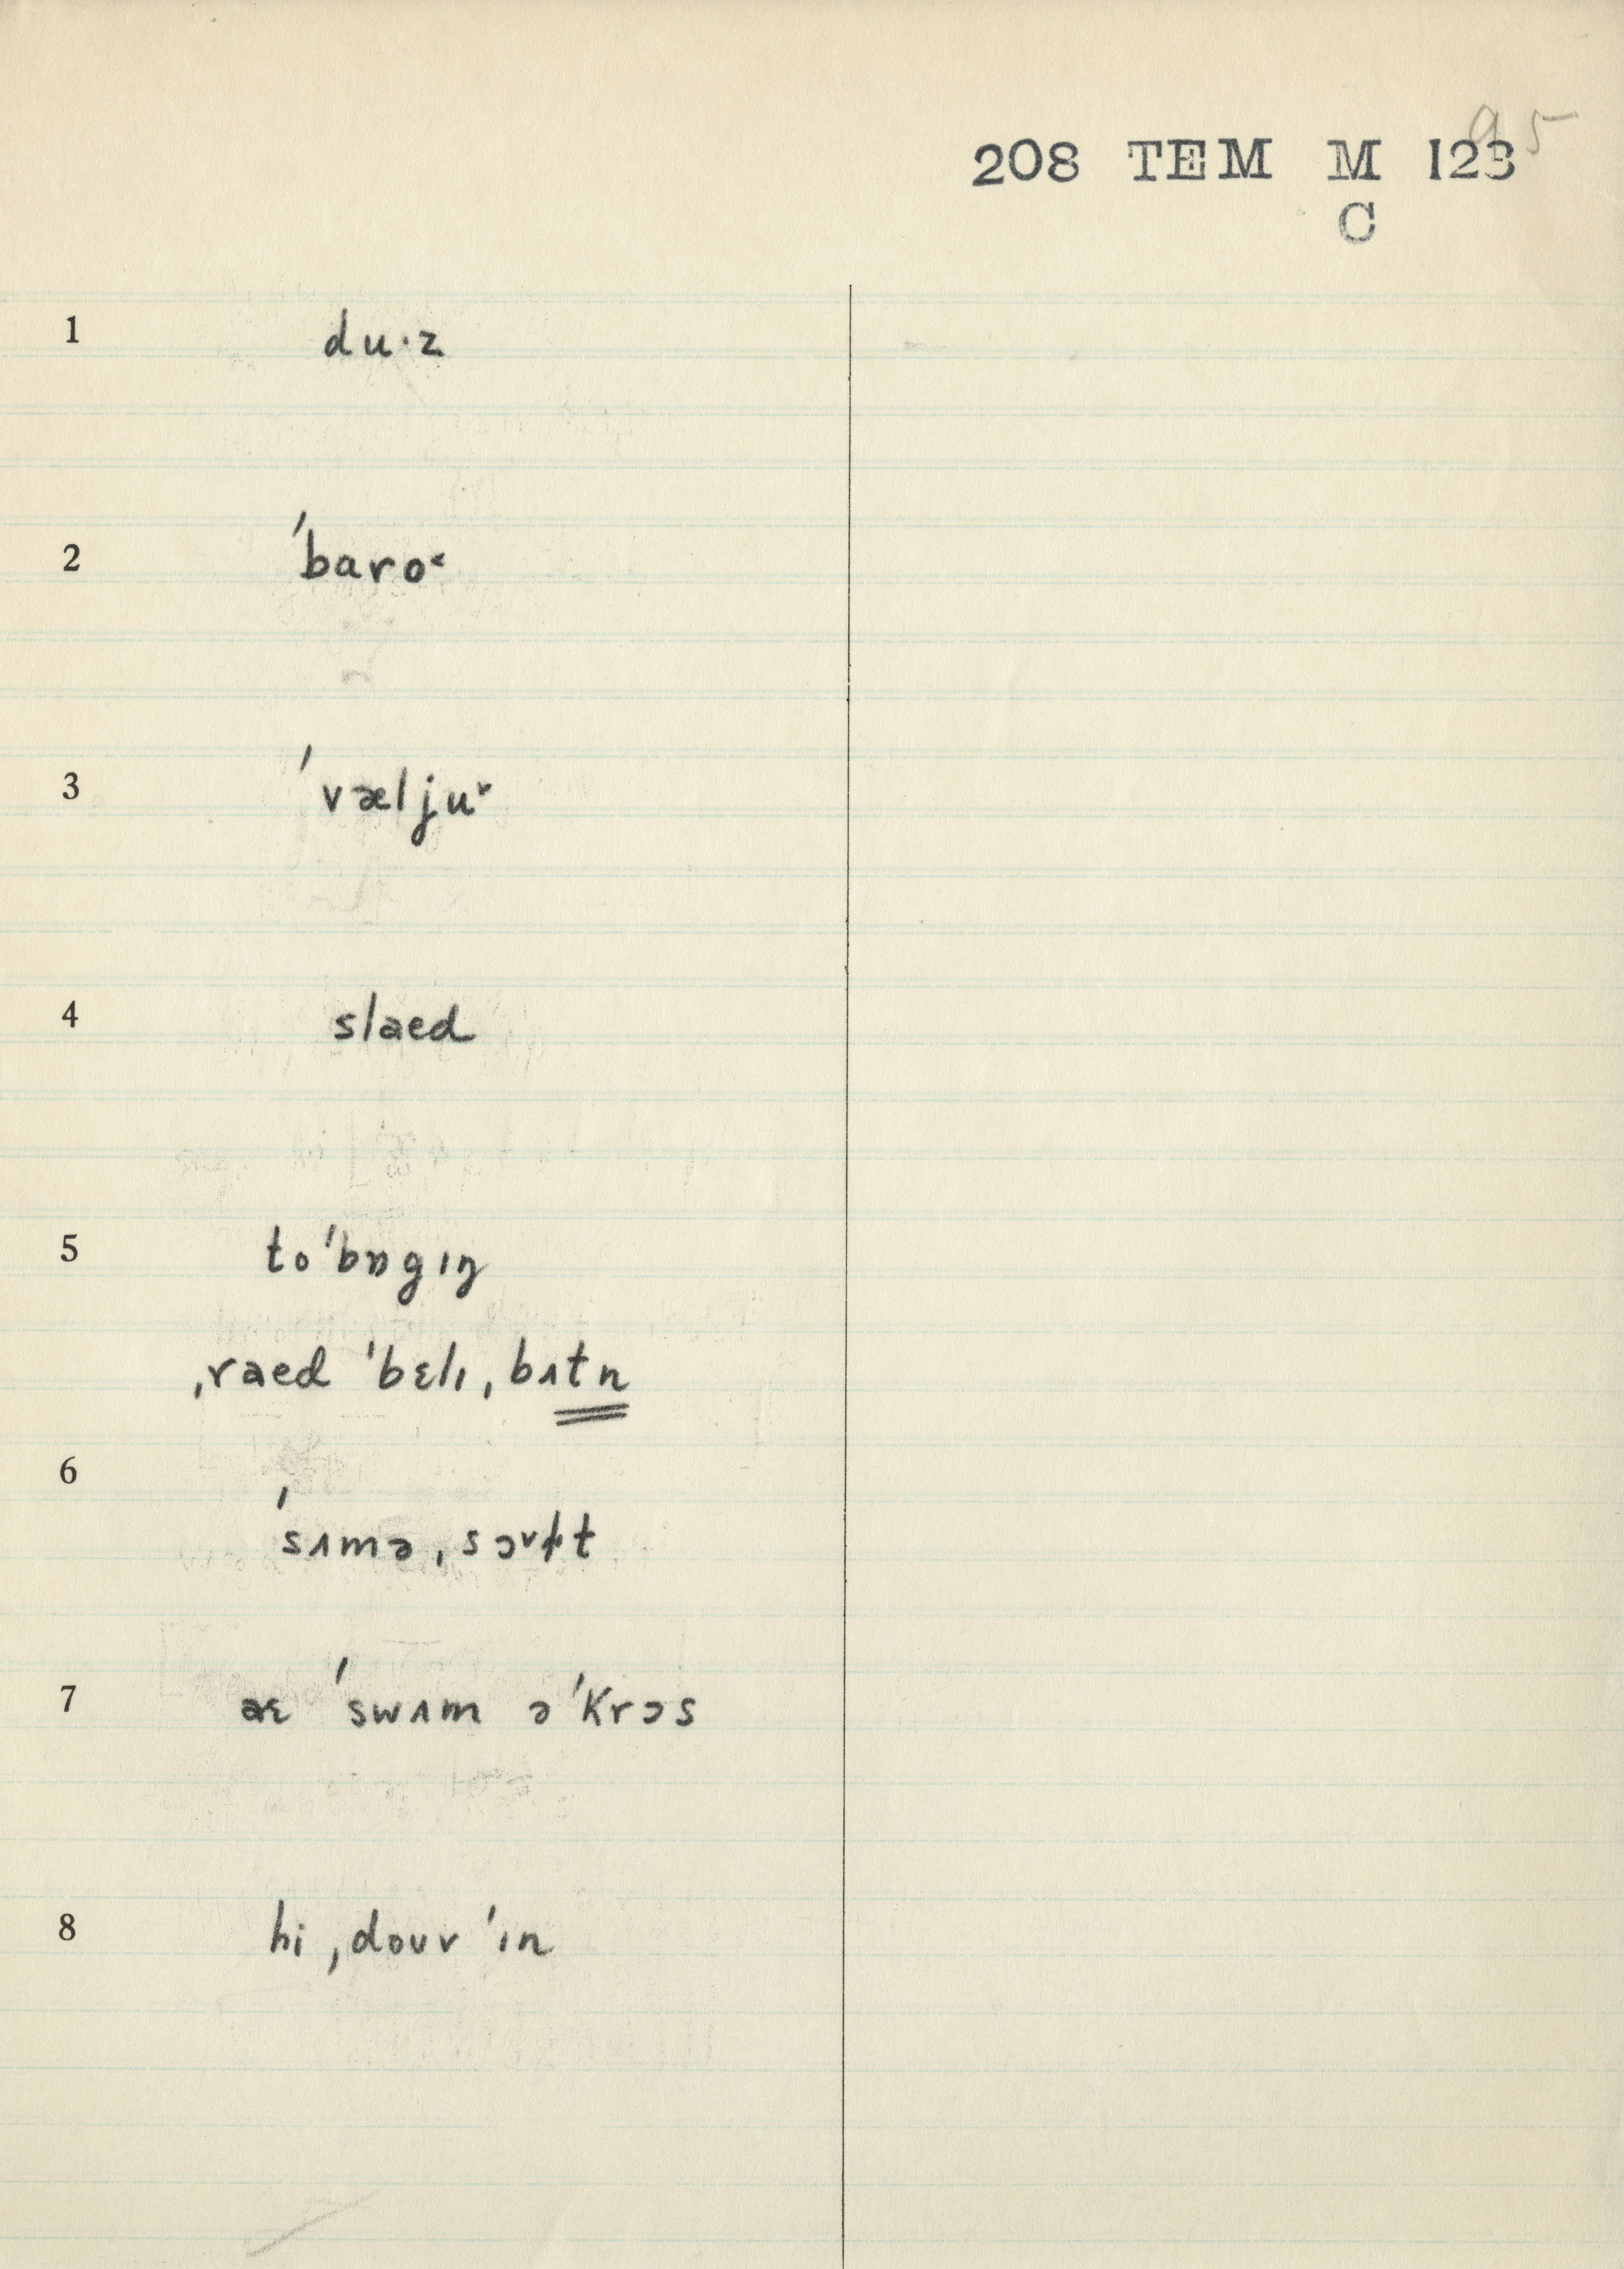 95
208 TEM M 123
C
1 du·z
2 ˈbaro˂
3 ˈvæljuᵛ
4 slaed
5 toˈbɒgɪŋ
ˌraed ˈbɛlɪˌbʌtn
6 ˈsʌməˌsɔᵛɫt
7 aɛ ˈswʌm əˈkrɔs
8 hi ˌdouv ˈɪn